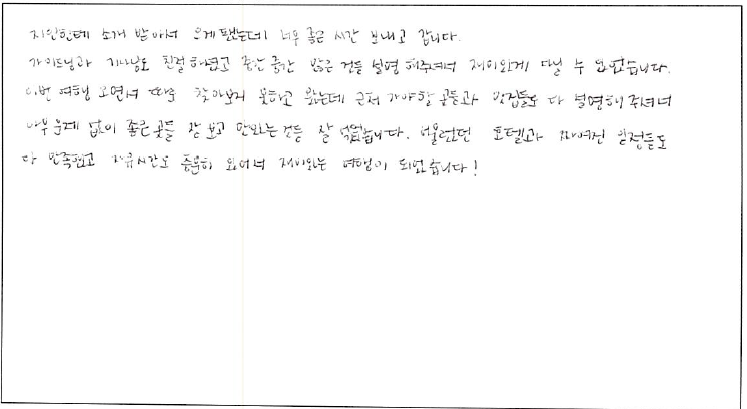 지인한테 소개 받아서 오게 됐는데 너무 좋은 시간 보내고 갑니다.
가이드님과 기사님도 친절하셨고 중간 중간 많은 것들 설명 해주셔서 재미있게 다닐 수 있었습니다.
이번 여행 오면서 따로 찾아보지 못하고 왔는데 근처 가야할 곳들과 맛집들도 다 설명해 주셔서
아무 문제 없이 좋은 곳들 잘 보고 맛있는 것들 잘 먹었습니다. 머물렀던 호텔과 짜여진 일정들도
다 만족했고 자유시간도 충분히 있어서 재미있는 여행이 되었습니다!